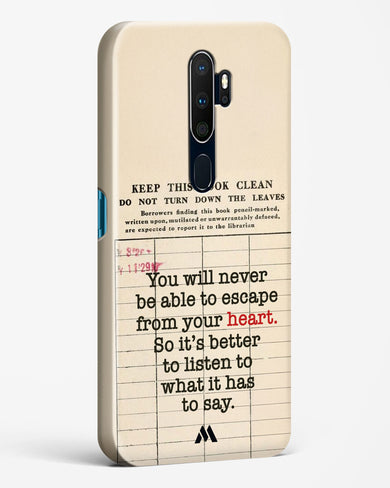 KEEP THIS OOK CLEAN
DO NOT TURN DOWN THE LEAVES
Borrowers finding this book pencil-marked,
written upon, mutilated or unwarrantably defaced,
are expected to report it to the librarian
You will never
be able to escape
from your heart.
So it's better
to listen to
what it has
to say.